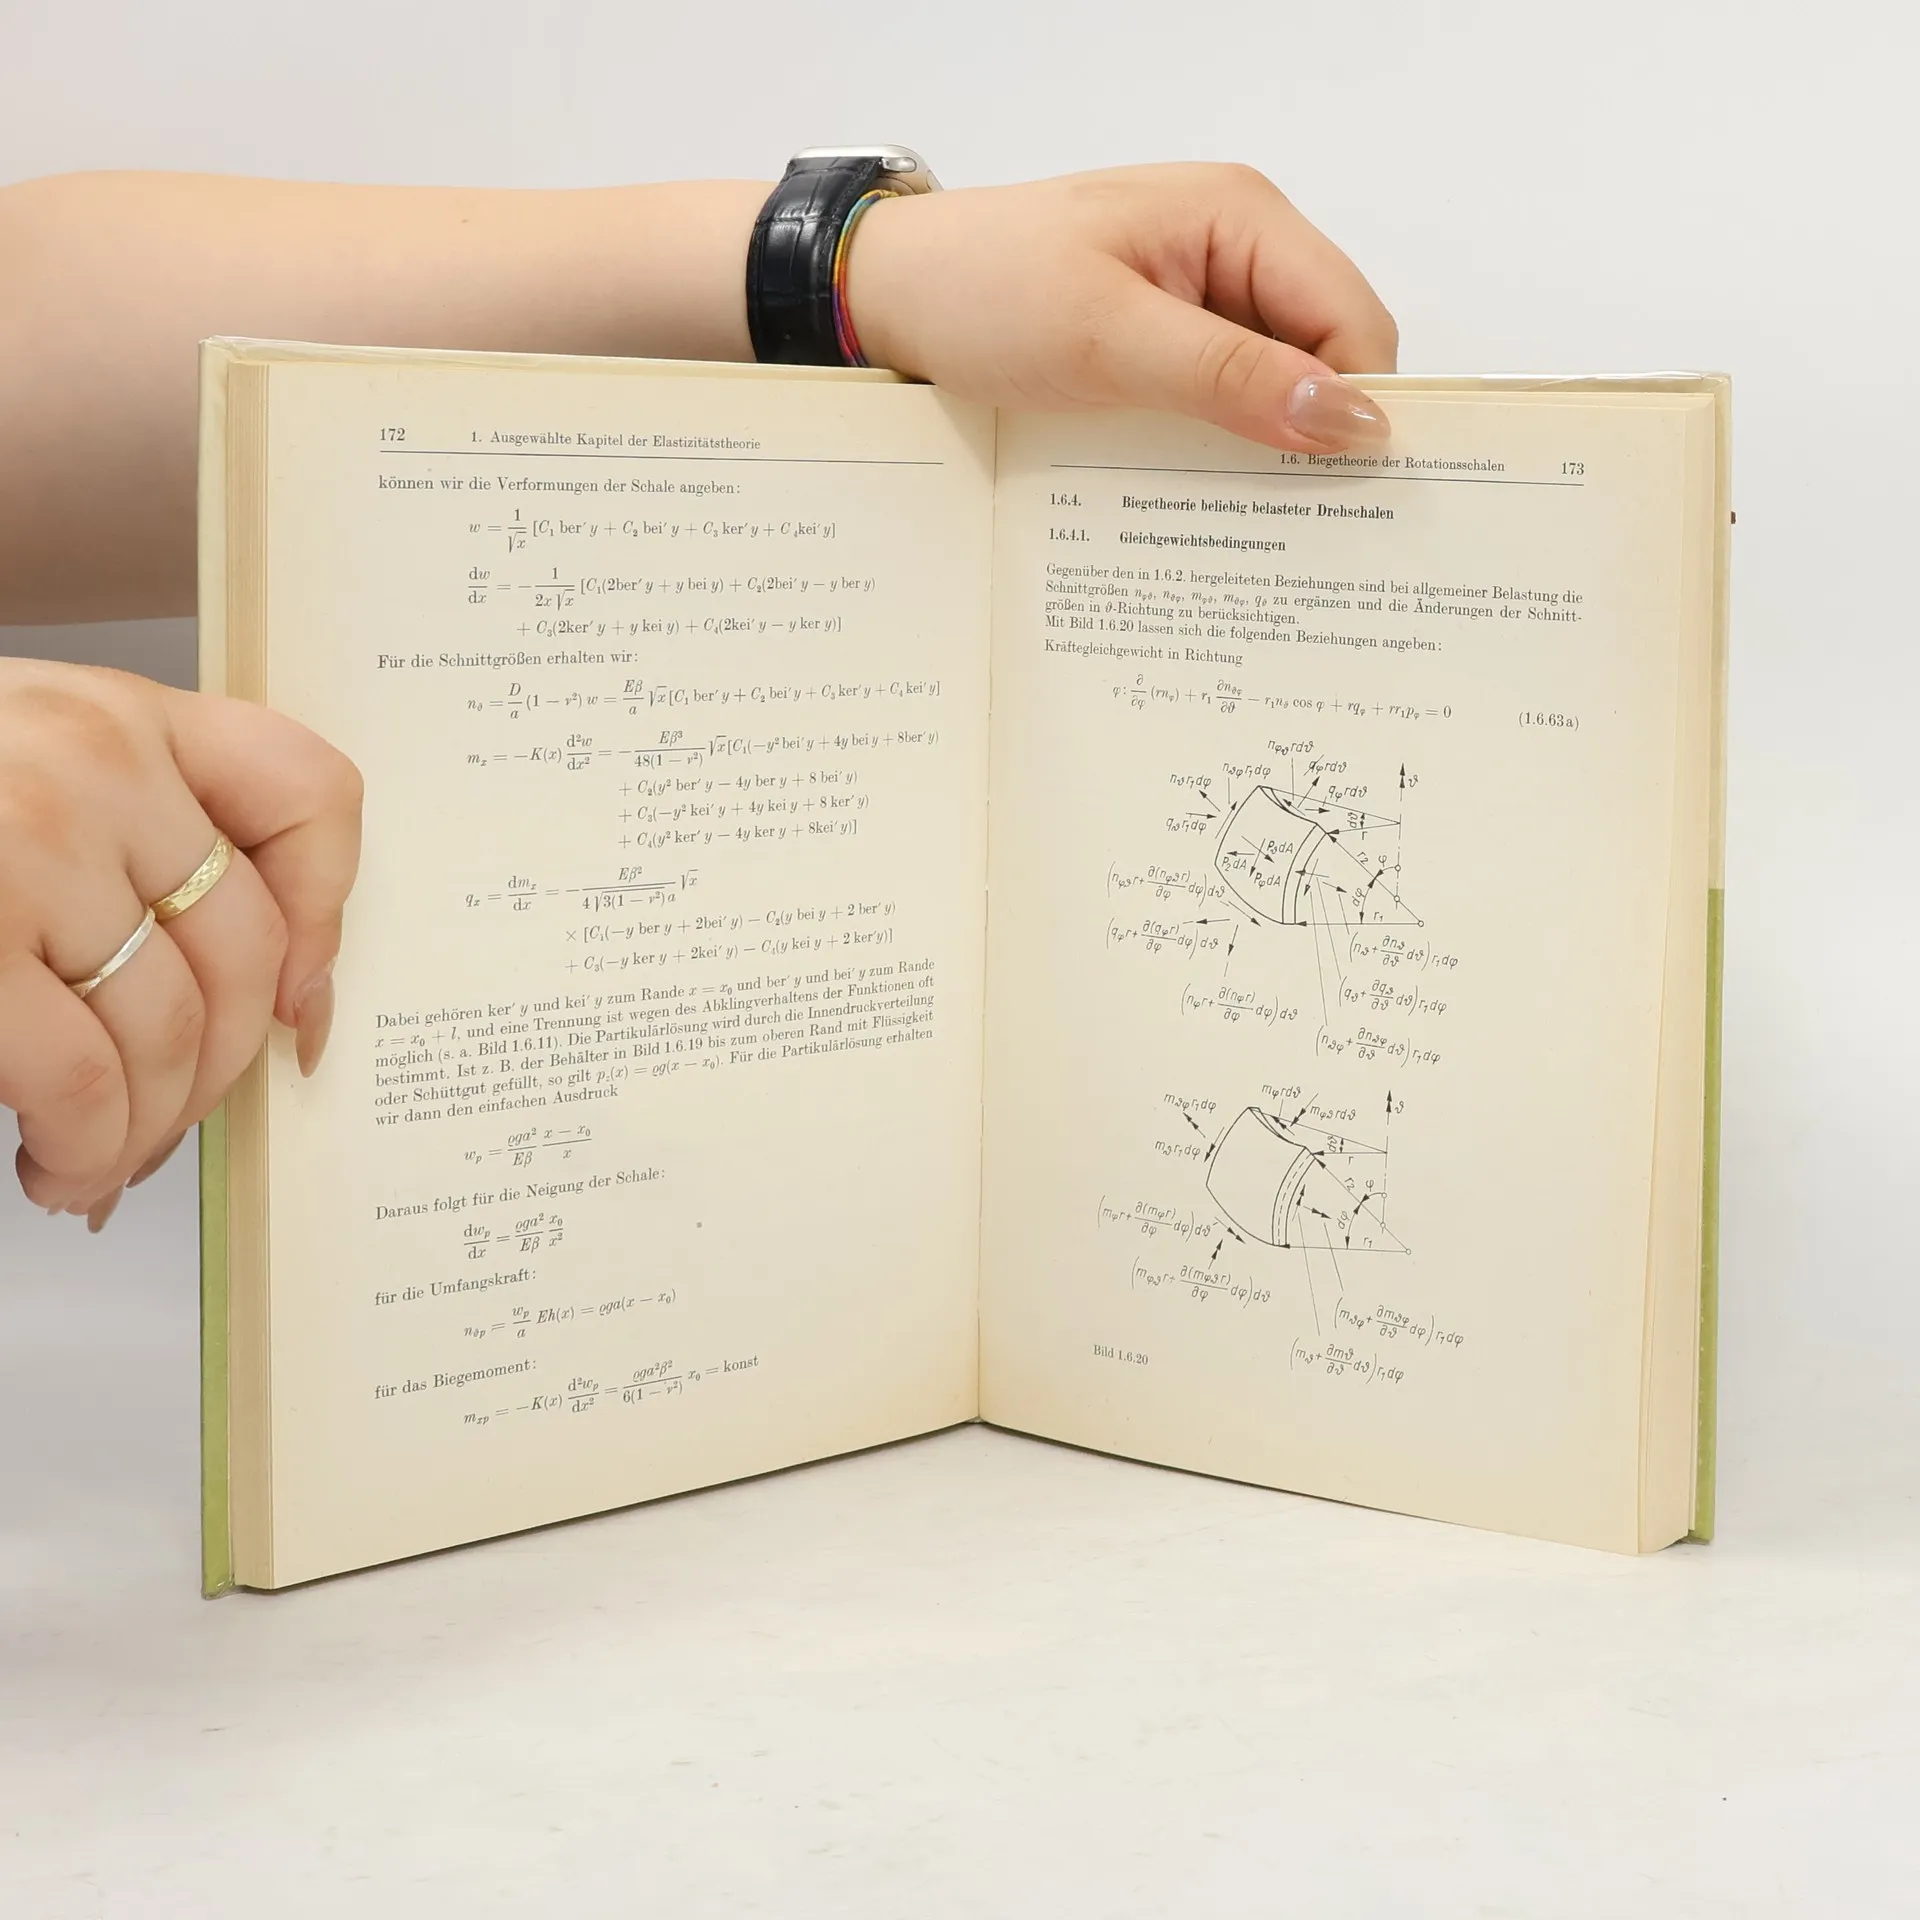 172 1. Ausgewählte Kapitel der Elastizitätstheorie
können wir die Verformungen der Schale angeben:
w = 1/√x [C₁ ber′ y + C₂ bei′ y + C₃ ker′ y + C₄ kei′ y]
dw/dx = − 1/(2x √x) [C₁(2ber′ y + y bei y) + C₂(2bei′ y − y ber y)
+ C₃(2ker′ y + y kei y) + C₄(2kei′ y − y ker y)]
Für die Schnittgrößen erhalten wir:
n_ϑ = D/a (1 − ν²) w = Eβ/a √x [C₁ ber′ y + C₂ bei′ y + C₃ ker′ y + C₄ kei′ y]
m_x = −K(x) d²w/dx² = − Eβ³/(48(1 − ν²)) √x [C₁(−y² bei′ y + 4y bei y + 8ber′ y)
+ C₂(y² ber′ y − 4y ber y + 8 bei′ y)
+ C₃(−y² kei′ y + 4y kei y + 8 ker′ y)
+ C₄(y² ker′ y − 4y ker y + 8kei′ y)]
q_x = dm_x/dx = − Eβ²/(4 √3(1 − ν²) a) √x
× [C₁(−y ber y + 2bei′ y) − C₂(y bei y + 2 ber′ y)
+ C₃(−y ker y + 2kei′ y) − C₄(y kei y + 2 ker′y)]
Dabei gehören ker′ y und kei′ y zum Rande x = x₀ und ber′ y und bei′ y zum Rande
x = x₀ + l, und eine Trennung ist wegen des Abklingverhaltens der Funktionen oft
möglich (s. a. Bild 1.6.11). Die Partikulärlösung wird durch die Innendruckverteilung
bestimmt. Ist z. B. der Behälter in Bild 1.6.19 bis zum oberen Rand mit Flüssigkeit
oder Schüttgut gefüllt, so gilt p_z(x) = ϱg(x − x₀). Für die Partikulärlösung erhalten
wir dann den einfachen Ausdruck
w_p = ϱga²/Eβ (x − x₀)/x
Daraus folgt für die Neigung der Schale:
dw_p/dx = ϱga²/Eβ x₀/x²
für die Umfangskraft:
n_ϑp = w_p/a Eh(x) = ϱga(x − x₀)
für das Biegemoment:
m_xp = −K(x) d²w_p/dx² = ϱga²β²/(6(1 − ν²)) x₀ = konst
1.6. Biegetheorie der Rotationsschalen 173
1.6.4. Biegetheorie beliebig belasteter Drehschalen
1.6.4.1. Gleichgewichtsbedingungen
Gegenüber den in 1.6.2. hergeleiteten Beziehungen sind bei allgemeiner Belastung die
Schnittgrößen n_φϑ, n_ϑφ, m_φϑ, m_ϑφ, q_ϑ zu ergänzen und die Änderungen der Schnitt-
größen in ϑ-Richtung zu berücksichtigen.
Mit Bild 1.6.20 lassen sich die folgenden Beziehungen angeben:
Kräftegleichgewicht in Richtung
φ: ∂/∂φ (rn_φ) + r₁ ∂n_ϑφ/∂ϑ − r₁n_ϑ cos φ + rq_φ + rr₁p_φ = 0 (1.6.63a)
n_φϑ rdϑ
n_ϑφ r₁dφ
n_φ rdϑ
n_ϑ r₁dφ
q_φ rdϑ
ϑ
q_ϑ r₁dφ
dϑ
r
p_ϑ dA
p_z dA
p_φ dA
r₂
φ
dφ
r₁
(n_φϑ r + ∂(n_φϑ r)/∂φ dφ) dϑ
(q_φ r + ∂(q_φ r)/∂φ dφ) dϑ
(n_ϑ + ∂n_ϑ/∂ϑ dϑ) r₁dφ
(n_φ r + ∂(n_φ r)/∂φ dφ) dϑ
(q_ϑ + ∂q_ϑ/∂ϑ dϑ) r₁dφ
(n_ϑφ + ∂n_ϑφ/∂ϑ dϑ) r₁dφ
m_φ rdϑ
m_ϑφ r₁dφ
m_φϑ rdϑ
ϑ
m_ϑ r₁dφ
dϑ
r
r₂
φ
dφ
r₁
(m_φ r + ∂(m_φ r)/∂φ dφ) dϑ
(m_φϑ r + ∂(m_φϑ r)/∂φ dφ) dϑ
(m_ϑφ + ∂m_ϑφ/∂ϑ dφ) r₁dφ
(m_ϑ + ∂m_ϑ/∂ϑ dϑ) r₁dφ
Bild 1.6.20